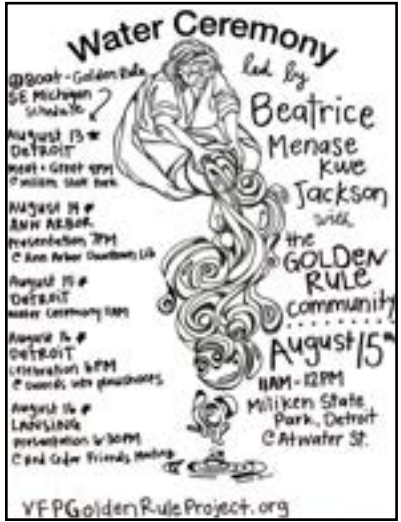 Water Ceremony
led by
Beatrice
Menase
Kwe
Jackson
with
the
GOLDEN
RULE
community
August 15th
11AM-12PM
Miliken State
Park, Detroit
@ Atwater St.
Boat - Golden Rule
SE Michigan
Schedule
August 13
DETROIT
Meet + Greet 4PM
@ Milliken State Park
August 14
ANN ARBOR
Presentation 7PM
@ Ann Arbor Downtown Lib
August 15
DETROIT
Water Ceremony 11AM
DETROIT
celebration 6PM
@ swords into plowshares
August 16
LANSING
presentation 6:30PM
@ Red Cedar Friends Meeting
VFPGoldenRuleProject.org